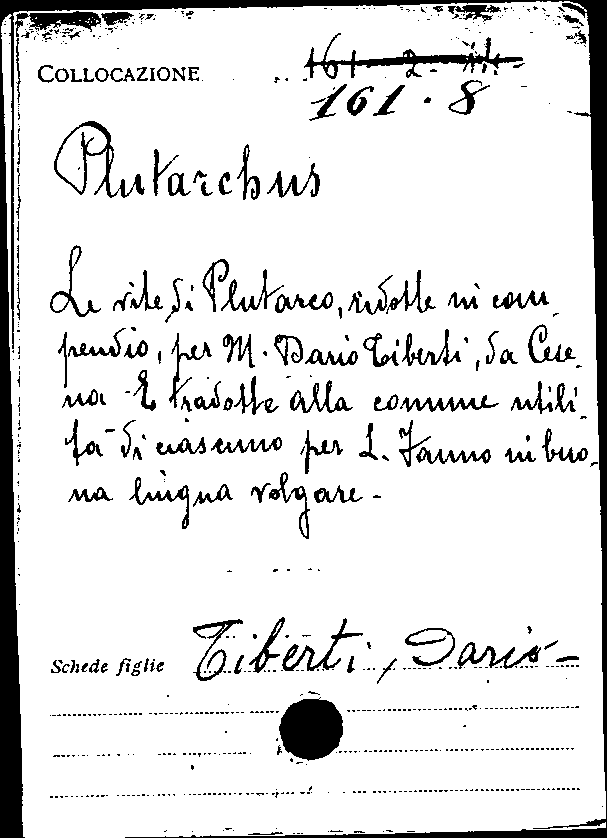 COLLOCAZIONE 161 - 2 -
161 . 8
Plutarchus
Le vite di Plutarco, ridotte in com
pendio, per M. Dario Tiberti, da Cese
na E tradotte alla comune utili
tà di ciascuno per L. Fauno in buo
na lingua volgare -
Schede figlie Tiberti, Dario -